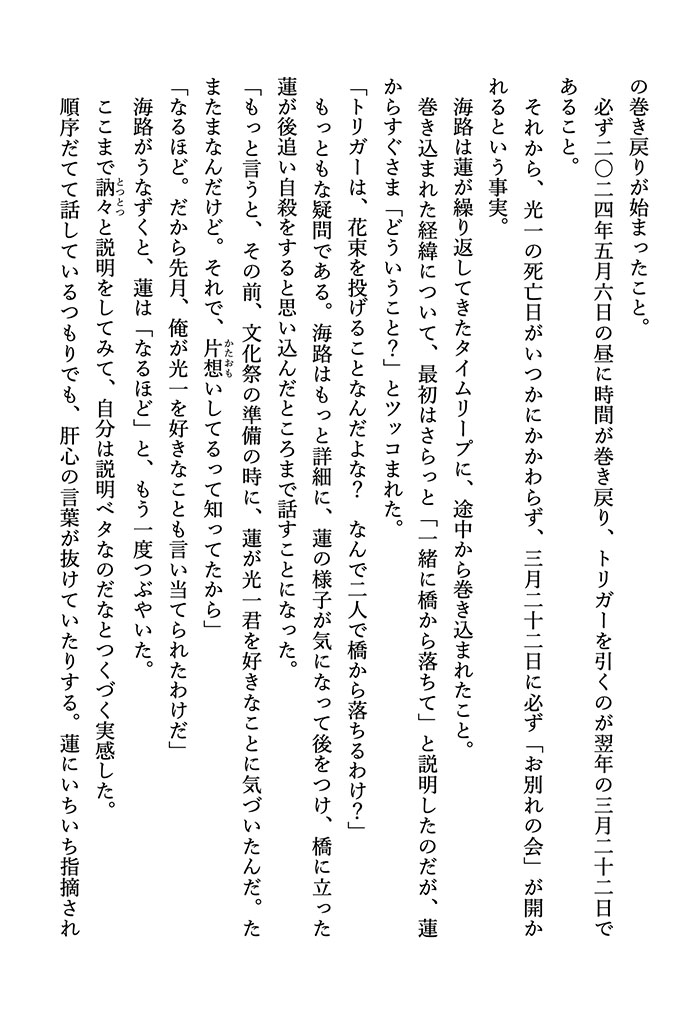 の巻き戻りが始まったこと。
必ず二〇二四年五月六日の昼に時間が巻き戻り、トリガーを引くのが翌年の三月二十二日で
あること。
それから、光一の死亡日がいつかにかかわらず、三月二十二日に必ず「お別れの会」が開か
れるという事実。
海路は蓮が繰り返してきたタイムリープに、途中から巻き込まれたこと。
巻き込まれた経緯について、最初はさらっと「一緒に橋から落ちて」と説明したのだが、蓮
からすぐさま「どういうこと？」とツッコまれた。
「トリガーは、花束を投げることなんだよな？　なんで二人で橋から落ちるわけ？」
もっともな疑問である。海路はもっと詳細に、蓮の様子が気になって後をつけ、橋に立った
蓮が後追い自殺をすると思い込んだところまで話すことになった。
「もっと言うと、その前、文化祭の準備の時に、蓮が光一君を好きなことに気づいたんだ。た
またまなんだけど。それで、片想いしてるって知ってたから」
「なるほど。だから先月、俺が光一を好きなことも言い当てられたわけだ」
海路がうなずくと、蓮は「なるほど」と、もう一度つぶやいた。
ここまで訥々と説明をしてみて、自分は説明ベタなのだなとつくづく実感した。
順序だてて話しているつもりでも、肝心の言葉が抜けていたりする。蓮にいちいち指摘され